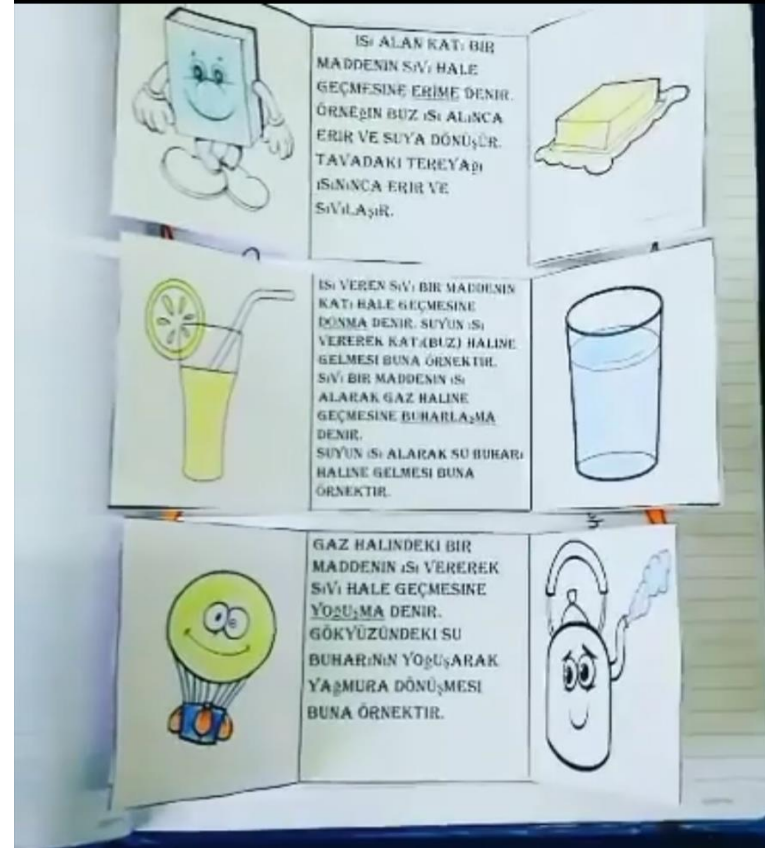 ISI ALAN KATI BİR
MADDENİN SIVI HALE
GEÇMESİNE ERİME DENİR.
ÖRNEĞİN BUZ ISI ALINCA
ERİR VE SUYA DÖNÜŞÜR.
TAVADAKİ TEREYAĞI
ISININCA ERİR VE
SIVILAŞIR.
ISI VEREN SIVI BİR MADDENİN
KATI HALE GEÇMESİNE
DONMA DENİR. SUYUN ISI
VEREREK KATI(BUZ) HALİNE
GELMESİ BUNA ÖRNEKTİR.
SIVI BİR MADDENİN ISI
ALARAK GAZ HALİNE
GEÇMESİNE BUHARLAŞMA
DENİR.
SUYUN ISI ALARAK SU BUHARI
HALİNE GELMESİ BUNA
ÖRNEKTİR.
GAZ HALİNDEKİ BİR
MADDENİN ISI VEREREK
SIVI HALE GEÇMESİNE
YOĞUŞMA DENİR.
GÖKYÜZÜNDEKİ SU
BUHARININ YOĞUŞARAK
YAĞMURA DÖNÜŞMESİ
BUNA ÖRNEKTİR.